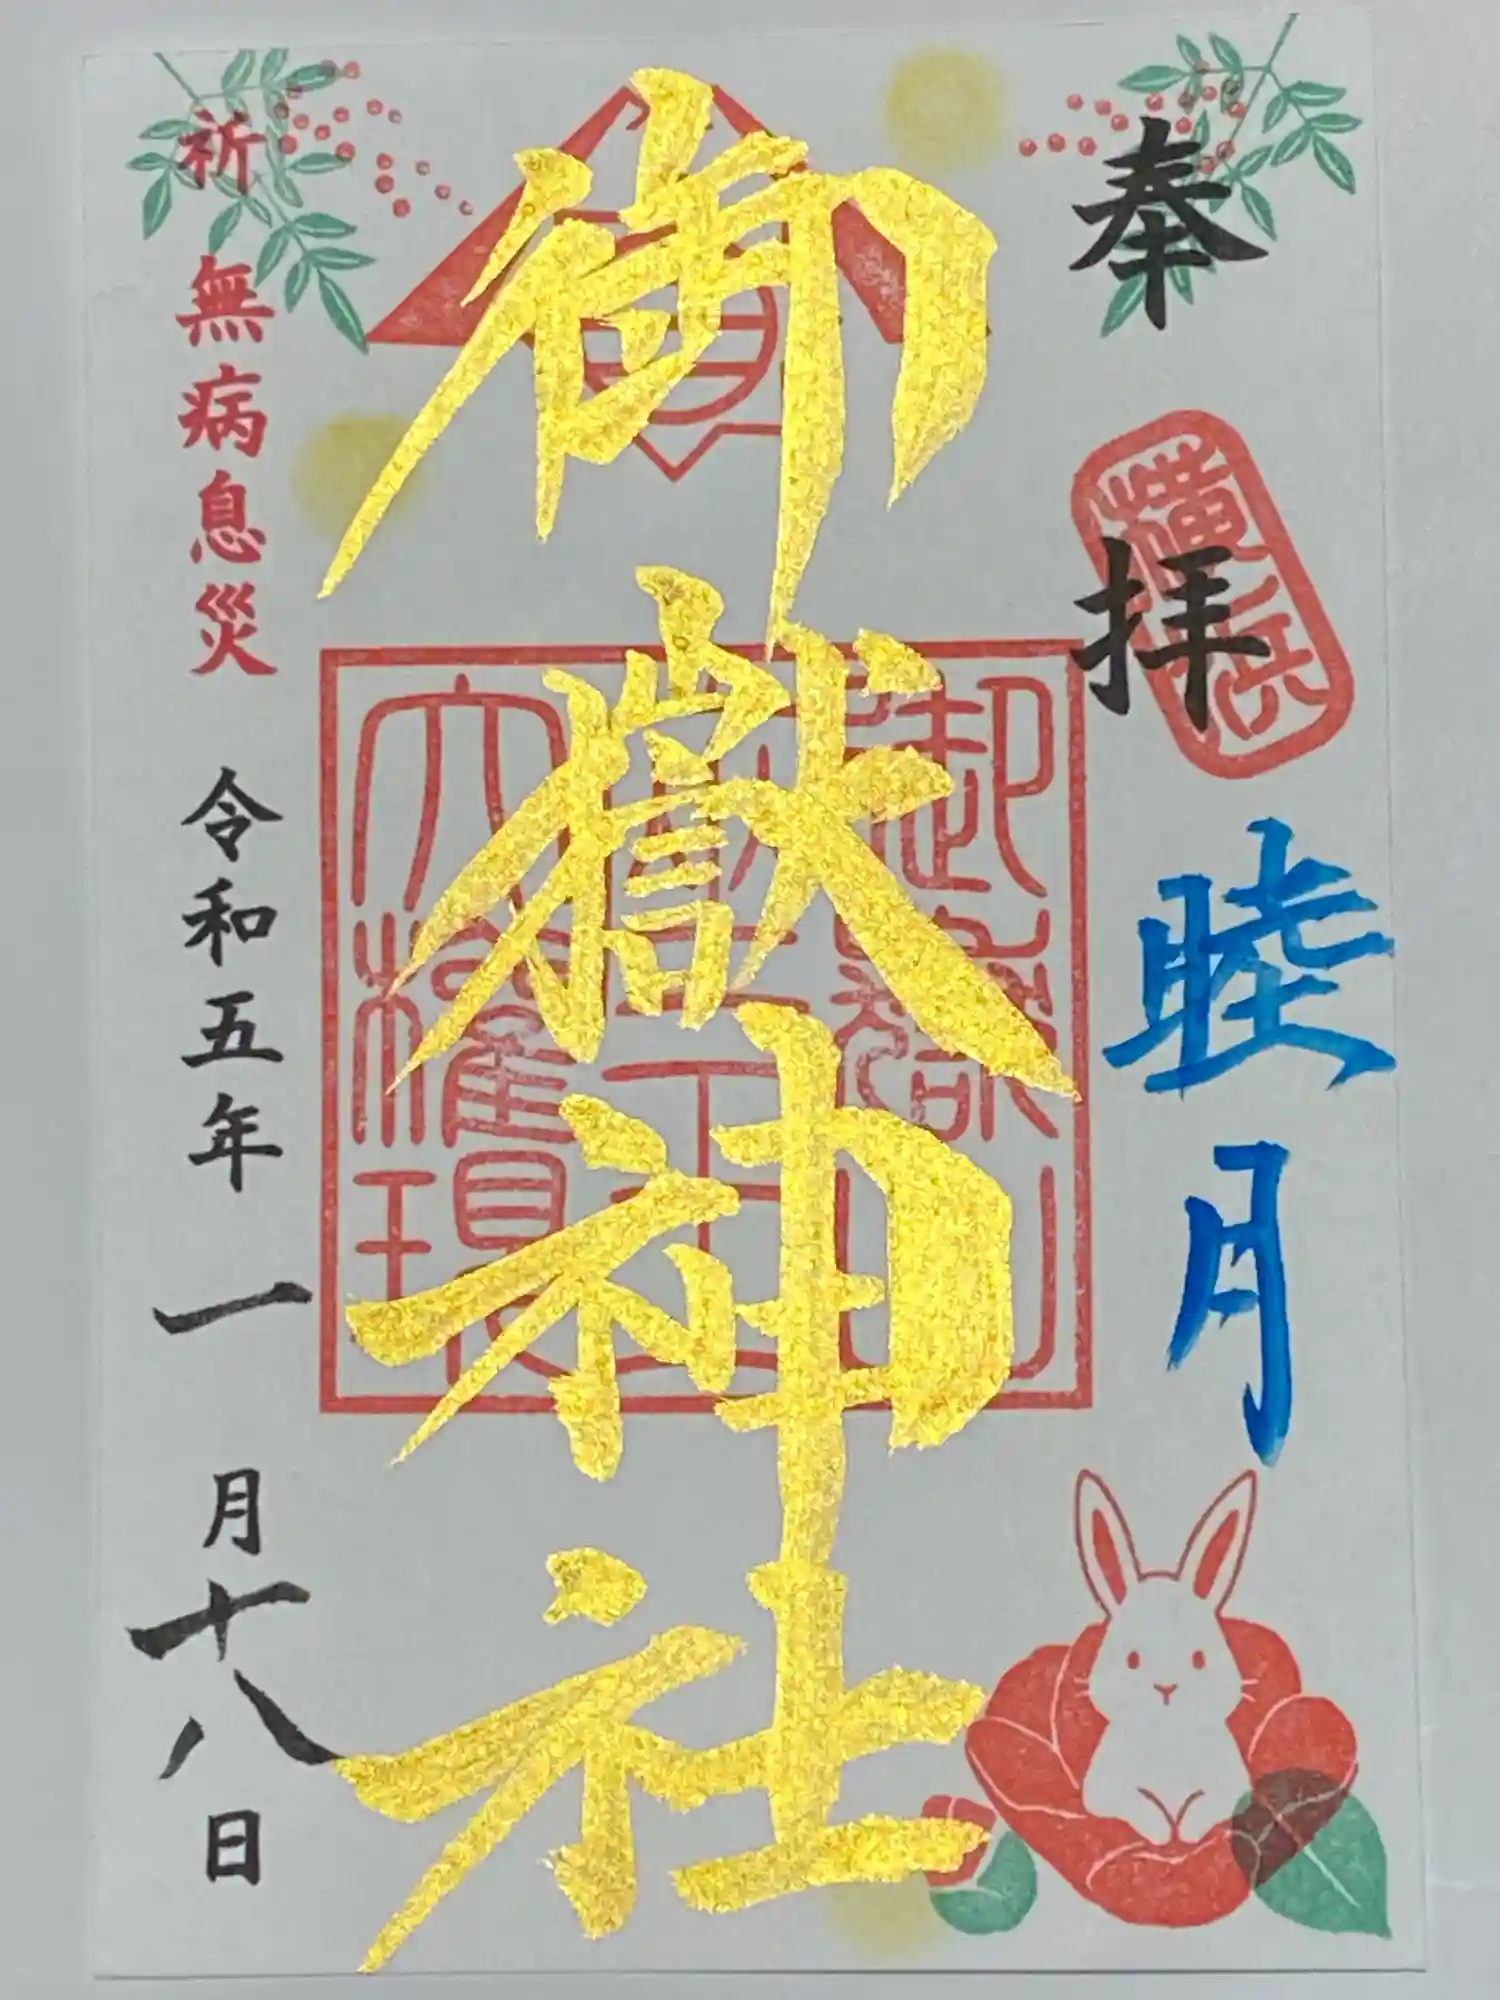 奉拝
横浜
睦月
御嶽神社
御嶽山
大権現
祈 無病息災
令和五年一月十八日